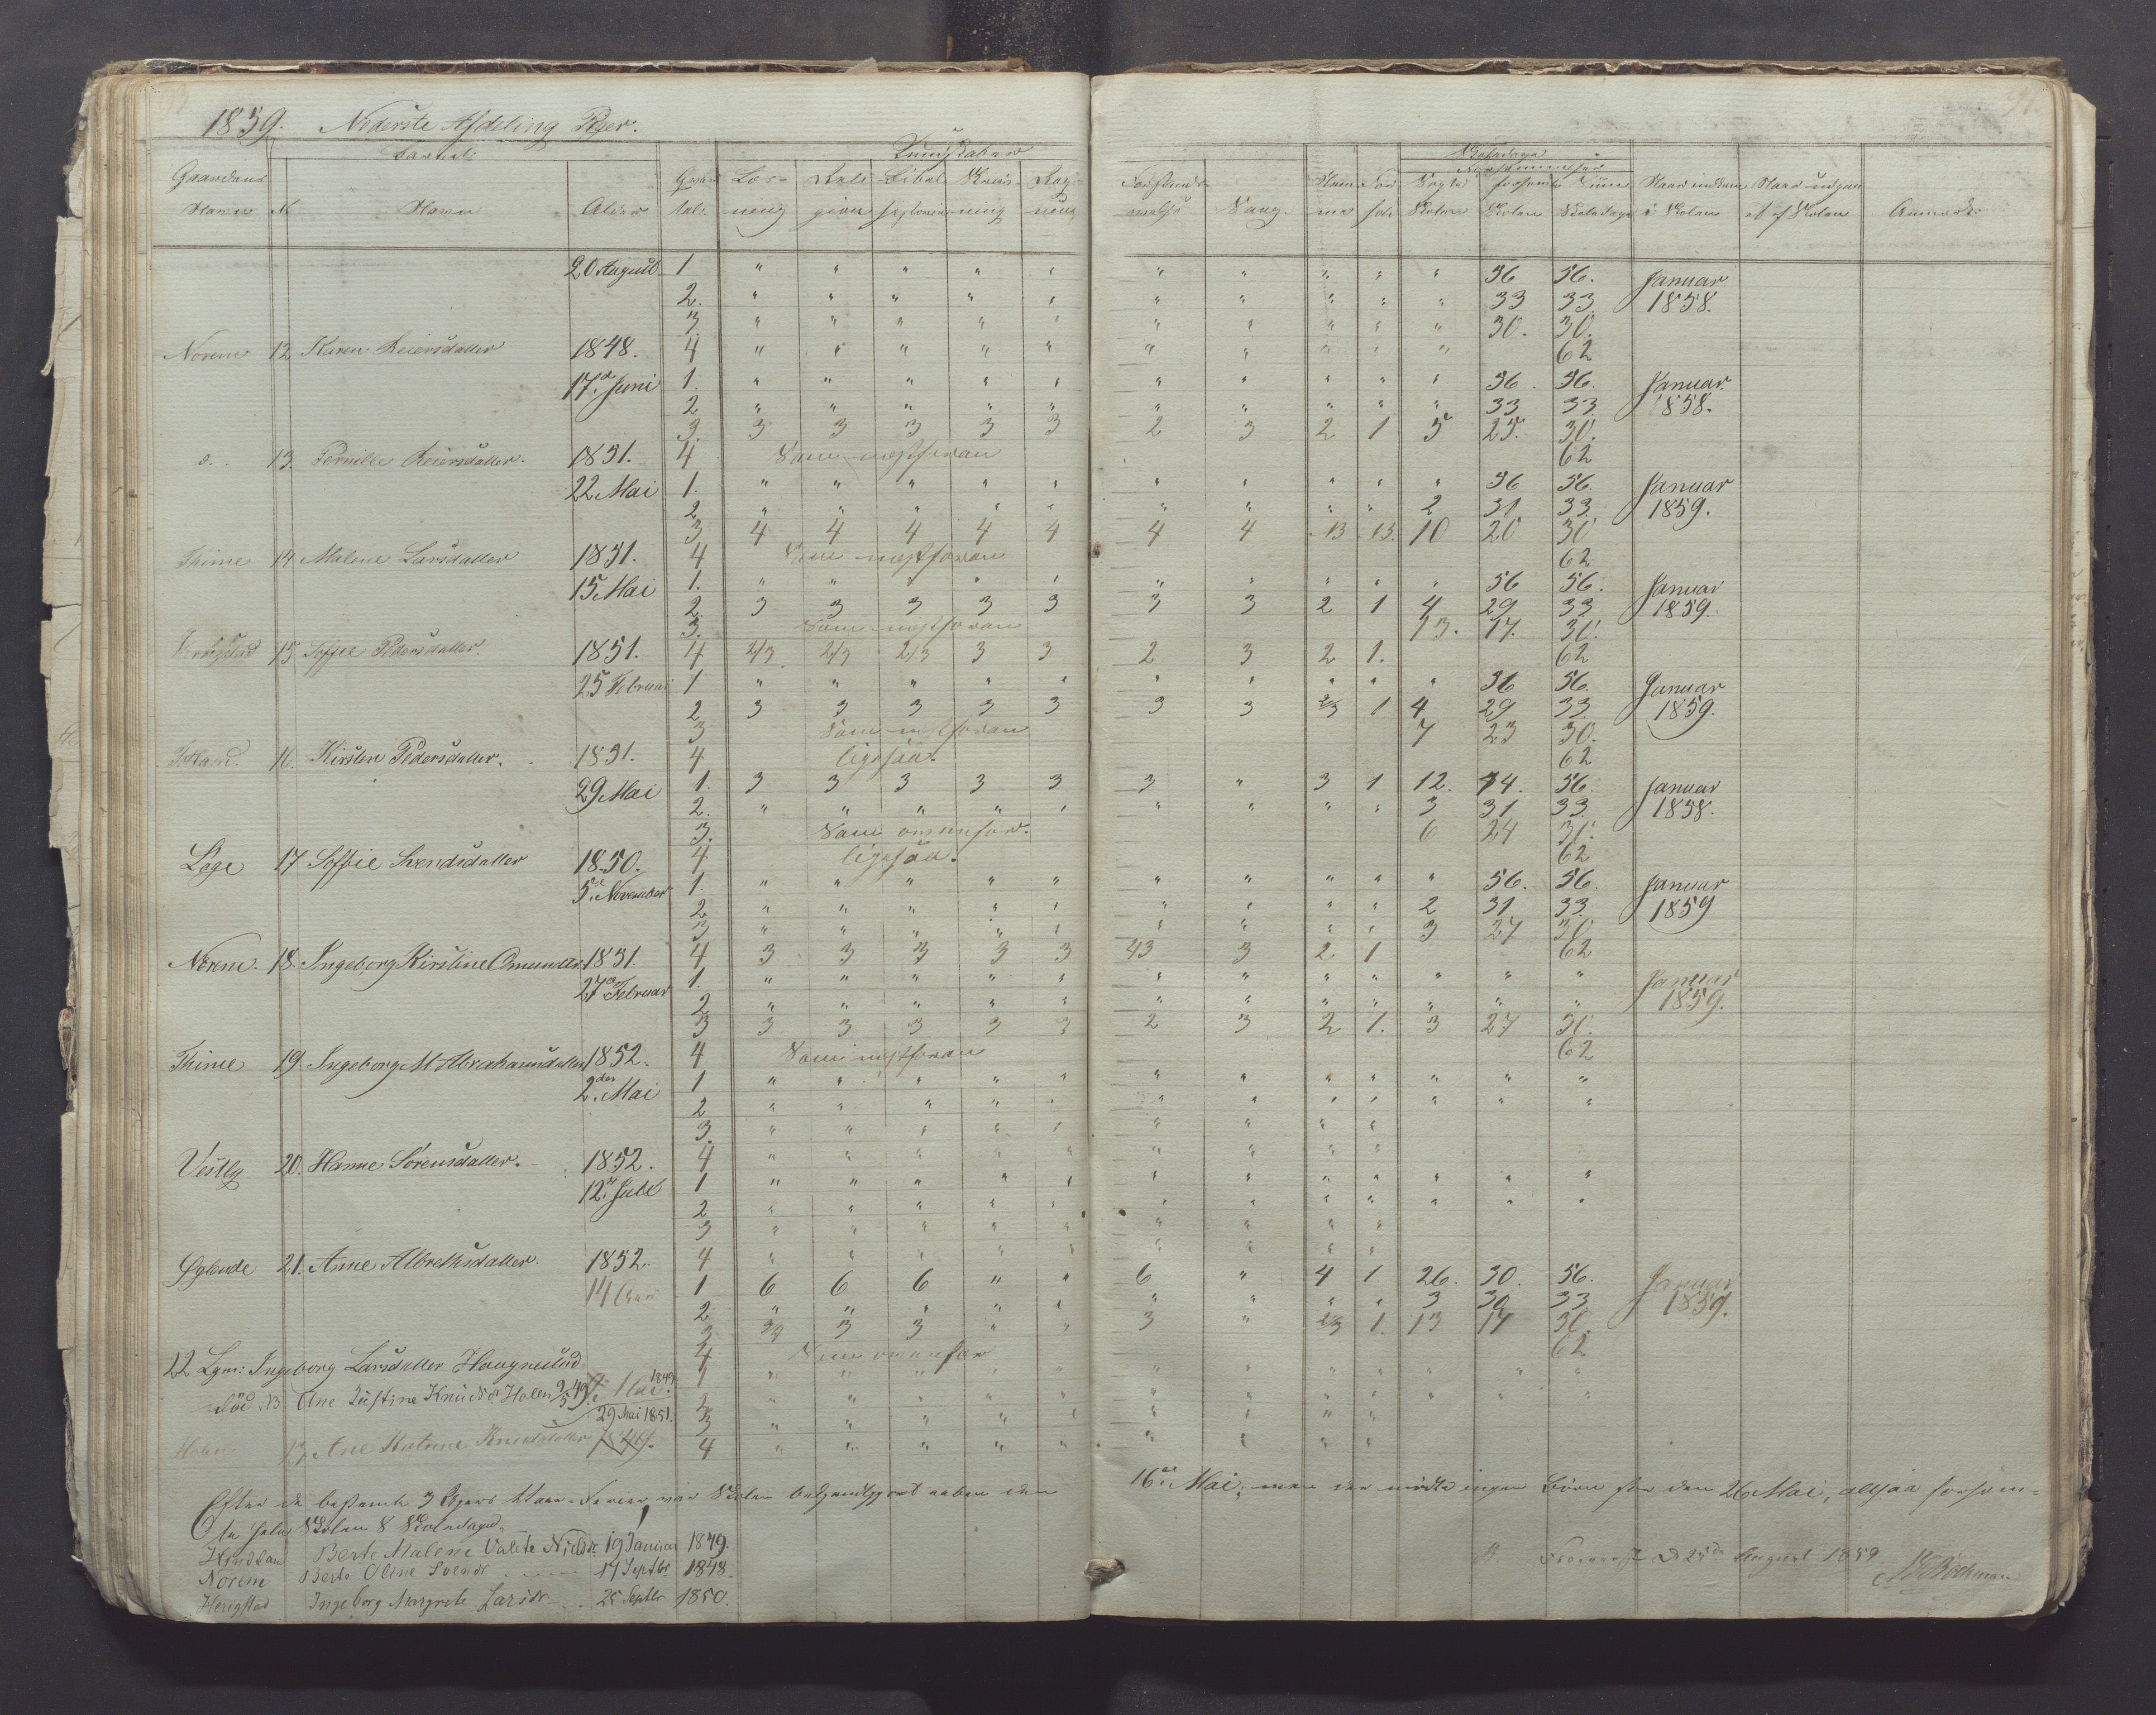 1859. Nederste Afdeling Piger.
Barnets Kundskaber Skoledage
Gaardens Navn N Navn Alder Qvar tal: Læs- ning Reli gion Bibel historie Skriv- ning Reg- ning Sang. Skolen Skoledage i Skolen af Skolen Anmærk:
20 August 1 " " " " " " " " " " 56 56. Januar
2. " " " " " " " " " " 33 33 1858.
3. " " " " " " " " " " 30. 30.
Norem 12 Karen Reiersdatter 1848. 4 " " " " " " " " " " 62
17de Juni 1. " " " " " " " " " " 56. 56. Januar
2 " " " " " " " " " " 33 33 1858.
3. 3 3 3 3 3 2 3 2 1 5 25. 30.
d. 13 Pernille Reiersdatter. 1851. 4 Som næstforan 62
22 Mai 1. " " " " " " " " " " 56 56. Januar
2 " " " " " " " " " 2 31 33 1859.
3 4 4 4 4 4 4 4 13 13. 10 20 30
Thime 14 Malene Larsdatter 1851. 4 Som næstforan 62
15 Mai 1. " " " " " " " " " " 56 56. Januar
2. 3 3 3 3 3 3 3 2 1 4 29 33 1859.
3. Som næstforan 13. 17. 30.
15 Soffie Pedersdatter. 1851. 4 2/3 2/3 2/3 3 3 2 3 2 1. 62
25 Februar 1 " " " " " " " " " " 56 56. Januar
2 3 3 3 3 3 3 3 2/3 1 4 29 33 1859.
3 Som næstforan 7 23 30.
16. Kirsten Pedersdatter. 1851. 4 ligesaa. 62
29 Mai 1. 3 3 3 3 3 3 " 3 1 12. 44. 56. Januar
2. " " " " " " " " " 3 31 33 1858.
3. Som ovenfor. 6 24 30.
Løge 17 Soffie Svendsdatter 1850. 4 ligesaa. 62
5te November 1. " " " " " " " " " " 56. 56. Januar
2 " " " " " " " " " 2 31 33 1859
3 " " " " " " " " " 3 27 30
Norem. 18. Ingeborg Kirstine Omundsdr 1851. 4 3 3 3 3 3 43 3 2 1 62
27de Februar 1. " " " " " " " " " " " " Januar
2 " " " " " " " " " " " " 1859.
3 3 3 3 3 3 2 3 2 1. 3 27 30.
Thime 19. Ingeborg M Abrahamsdatter 1852. 4 Som næstforan 62
2den Mai 1 " " " " " " " " " " " "
2 " " " " " " " " " " " "
3. " " " " " " " " "
Vestly 20. Hanne Sørensdatter. 1852. 4 " " " " " " " " "
12te Juli 1 " " " " " " " " " " " "
2 " " " " " " " " " " " "
3 " " " " " " " " "
21. Anne Albrethsdatter. 1852. 4 " " " " " " " " "
14 1 6 6 6 " " 6 " 4 1 26. 30. 56. Januar
2 " " " " " " " " " 3 30 33 1859.
3 3/4 3 3 " " 3 " 2/3 1. 13 17 30.
22 Ingeborg Larsdatter Haugnestad 4 Som ovenfor 62
Ane Justine Knudsdr Holen 9/5 49. Mai 1849. 1 " " " " " " " " " " " "
29 Mai 1851. 2 " " " " " " " " " " " "
3 " " " " " " " " "
Holen Ane Katrine Knudsdatter 4 " " " " " " " " "
Efter de bestemte 3 Ugers Vaar-Ferier, var Skolen bekjendtgjort aaben den 16de Mai; men der mødte ingen Børn før den 26 Mai, altsaa forsøm=
te hele Skolen 8 Skoledage.
Berte Malene Valete Nielsdr 19 Januar 1849.
Norem Berte Oline Svendr 17 Septbr 1848.
Herigstad Ingeborg Margrete Larsdr 25 Septbr 1850.
25de August 1859